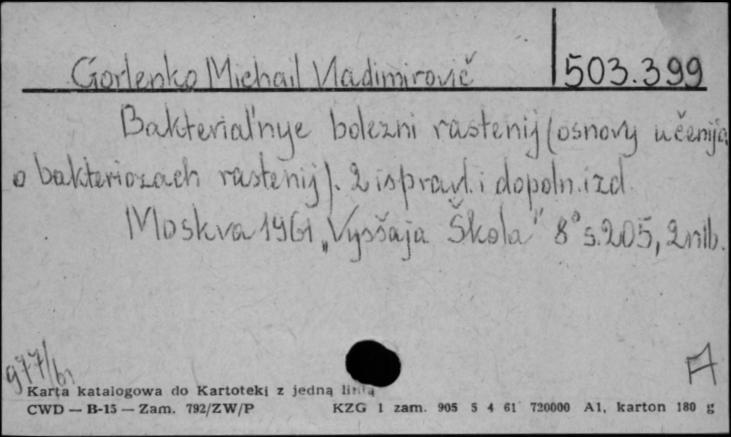 Gorlenko Michail Vladimirovič 503.399
Bakterial'nye bolezni rastenij (osnovy učenija
o bakteriozach rastenij). 2 ispravl. i dopoln. izd.
Moskva 1961 „Vysšaja Škola" 8° s. 205, 2 nlb.
977/61
A
Karta katalogowa do Kartoteki z jedną linią
CWD — B-15 — Zam. 792/ZW/P KZG 1 zam. 905 5 4 61 720000 A1, karton 180 g